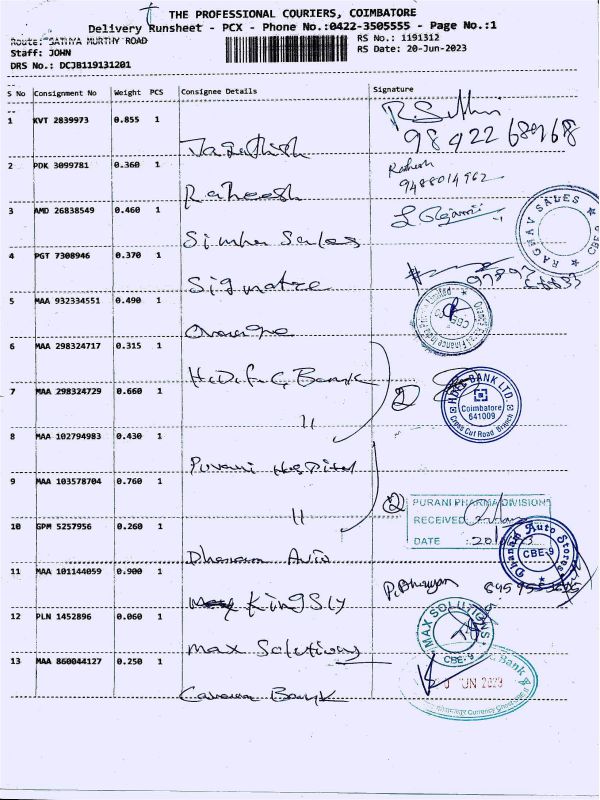 THE PROFESSIONAL COURIERS, COIMBATORE
Delivery Runsheet - PCX - Phone No.:0422-3505555 - Page No.:1
Route: SATHYA MURTHY ROAD
Staff: JOHN
DRS No.: DCJB119131201
RS No.: 1191312
RS Date: 20-Jun-2023
S No Consignment No Weight PCS Consignee Details Signature
1 KVT 2839973 0.855 1
Jagathish
2 PDK 3099781 0.360 1
Raheesh
9488014962
3 AMD 26838549 0.460 1
Simha Sales
RAGHAV SALES CBE-9
4 PGT 7308946 0.370 1
Signatre
5 MAA 932334551 0.490 1
Orange
6 MAA 298324717 0.315 1
Hdfc Bank
7 MAA 298324729 0.660 1
"
2
HDFC BANK LTD.
Coimbatore
641009
Cross Cut Road Branch
8 MAA 102794983 0.430 1
Purani Hospital
9 MAA 103578704 0.760 1
"
2
PURANI PHARMA DIVISIONS
RECEIVED
DATE :
10 GPM 5257956 0.260 1
Dhanam Auto
Dhanam Auto Stores
CBE-9
11 MAA 101144059 0.900 1
Kingsly
12 PLN 1452896 0.060 1
Max Solutions
MAX SOLUTIONS
CBE-9
13 MAA 860044127 0.250 1
Canara Bank
JUN 2023
Bank